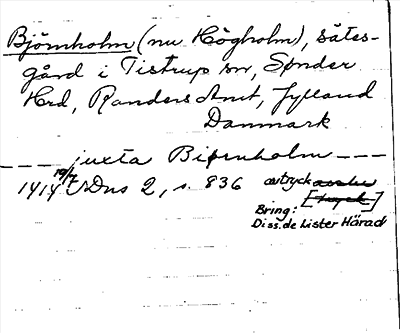 Björnholm (nu Högholm), sätes-
gård i Tistrup sn, Sønder
Hrd, Randers Amt, Jylland
Danmark
--- juxta Biørnholm ---
1414 19/7 SvDns 2, s. 836 avtryck
Bring:
Diss. de Lister Härad